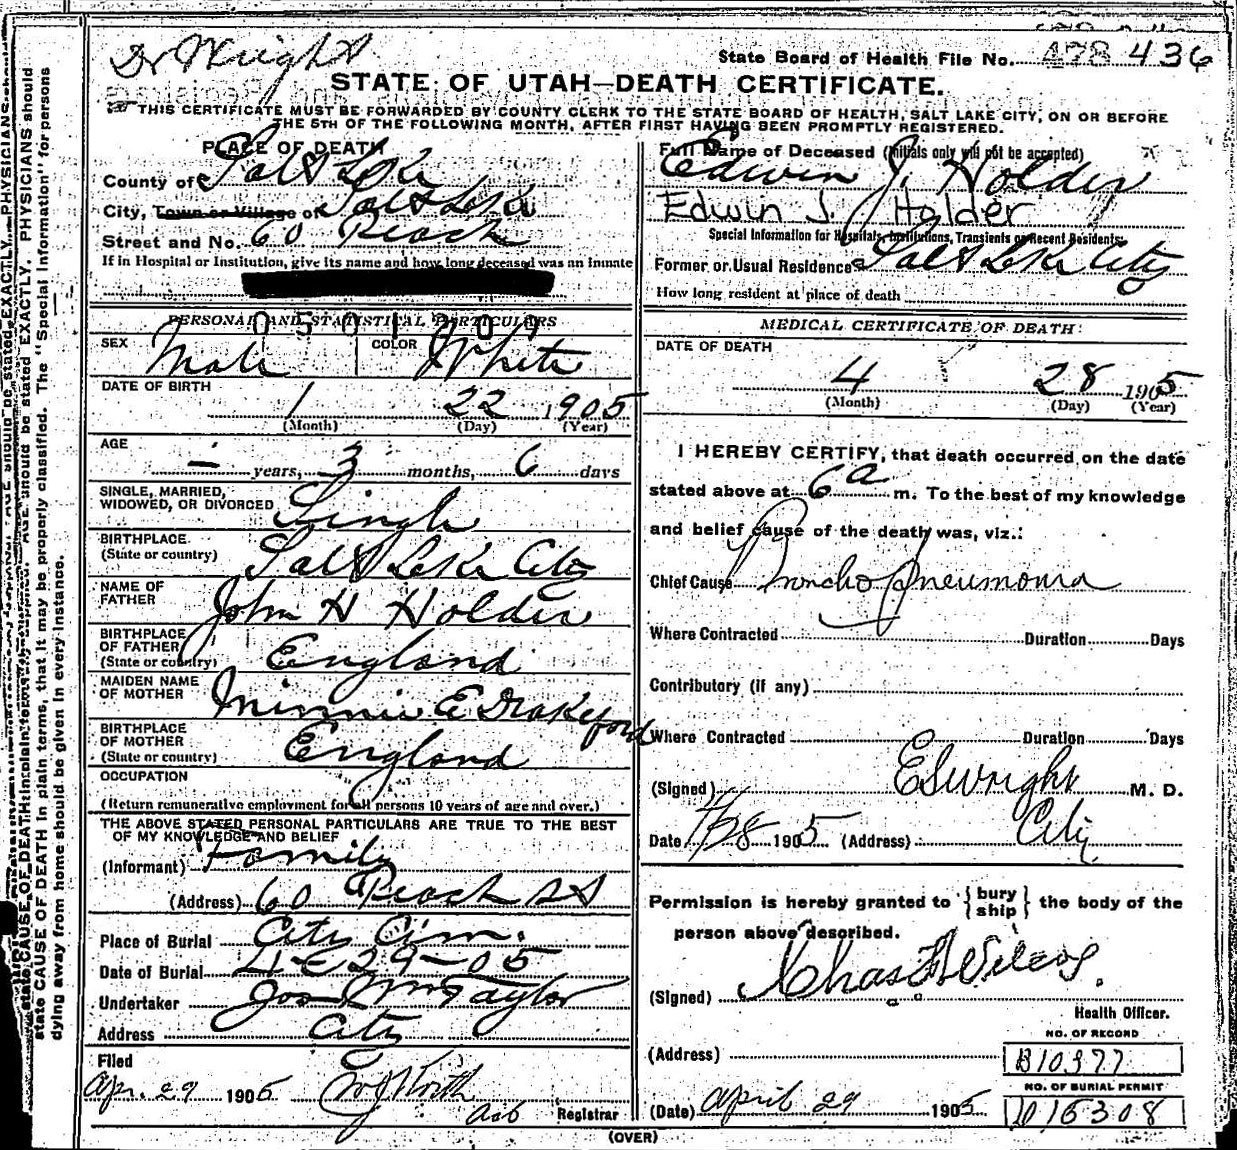 Dr Wright
State Board of Health File No. 478 436
STATE OF UTAH—DEATH CERTIFICATE.
THIS CERTIFICATE MUST BE FORWARDED BY COUNTY CLERK TO THE STATE BOARD OF HEALTH, SALT LAKE CITY, ON OR BEFORE
THE 5TH OF THE FOLLOWING MONTH, AFTER FIRST HAVING BEEN PROMPTLY REGISTERED.
PLACE OF DEATH
County of Salt Lake
City, Town or Village of Salt Lake
Street and No. 60 Peach
If in Hospital or Institution, give its name and how long deceased was an inmate
PERSONAL AND STATISTICAL PARTICULARS
SEX Male COLOR White
DATE OF BIRTH
1 22 1905
(Month) (Day) (Year)
AGE
– years, 3 months, 6 days
SINGLE, MARRIED,
WIDOWED, OR DIVORCED Single
BIRTHPLACE
(State or country) Salt Lake City
NAME OF
FATHER John H Holder
BIRTHPLACE
OF FATHER
(State or country) England
MAIDEN NAME
OF MOTHER Minnie E Drakeford
BIRTHPLACE
OF MOTHER
(State or country) England
OCCUPATION
(Return remunerative employment for all persons 10 years of age and over.)
THE ABOVE STATED PERSONAL PARTICULARS ARE TRUE TO THE BEST
OF MY KNOWLEDGE AND BELIEF
(Informant) Family
(Address) 60 Peach St
Place of Burial City Cem.
Date of Burial 4-29-05
Undertaker Jos Wm Taylor
Address City
Filed
Apr. 29 1905
Registrar
Full Name of Deceased (Initials only will not be accepted)
Edwin J. Holder
Edwin J. Holder
Special Information for Hospitals, Institutions, Transients or Recent Residents:
Former or Usual Residence Salt Lake City
How long resident at place of death
MEDICAL CERTIFICATE OF DEATH
DATE OF DEATH
4 28 1905
(Month) (Day) (Year)
I HEREBY CERTIFY, that death occurred on the date
stated above at 6 a m. To the best of my knowledge
and belief cause of the death was, viz.:
Chief Cause Broncho pneumonia
Where Contracted Duration Days
Contributory (if any)
Where Contracted Duration Days
(Signed) E S Wright M. D.
Date 4/28 1905 (Address) City
Permission is hereby granted to {bury
ship} the body of the
person above described.
(Signed) Chas F Wilcox.
Health Officer.
NO. OF RECORD
(Address) B10377
NO. OF BURIAL PERMIT
(Date) April 29 1905 D15308
(OVER)
state CAUSE OF DEATH in plain terms, that it may be properly classified. The "Special Information" for persons
dying away from home should be given in every instance.